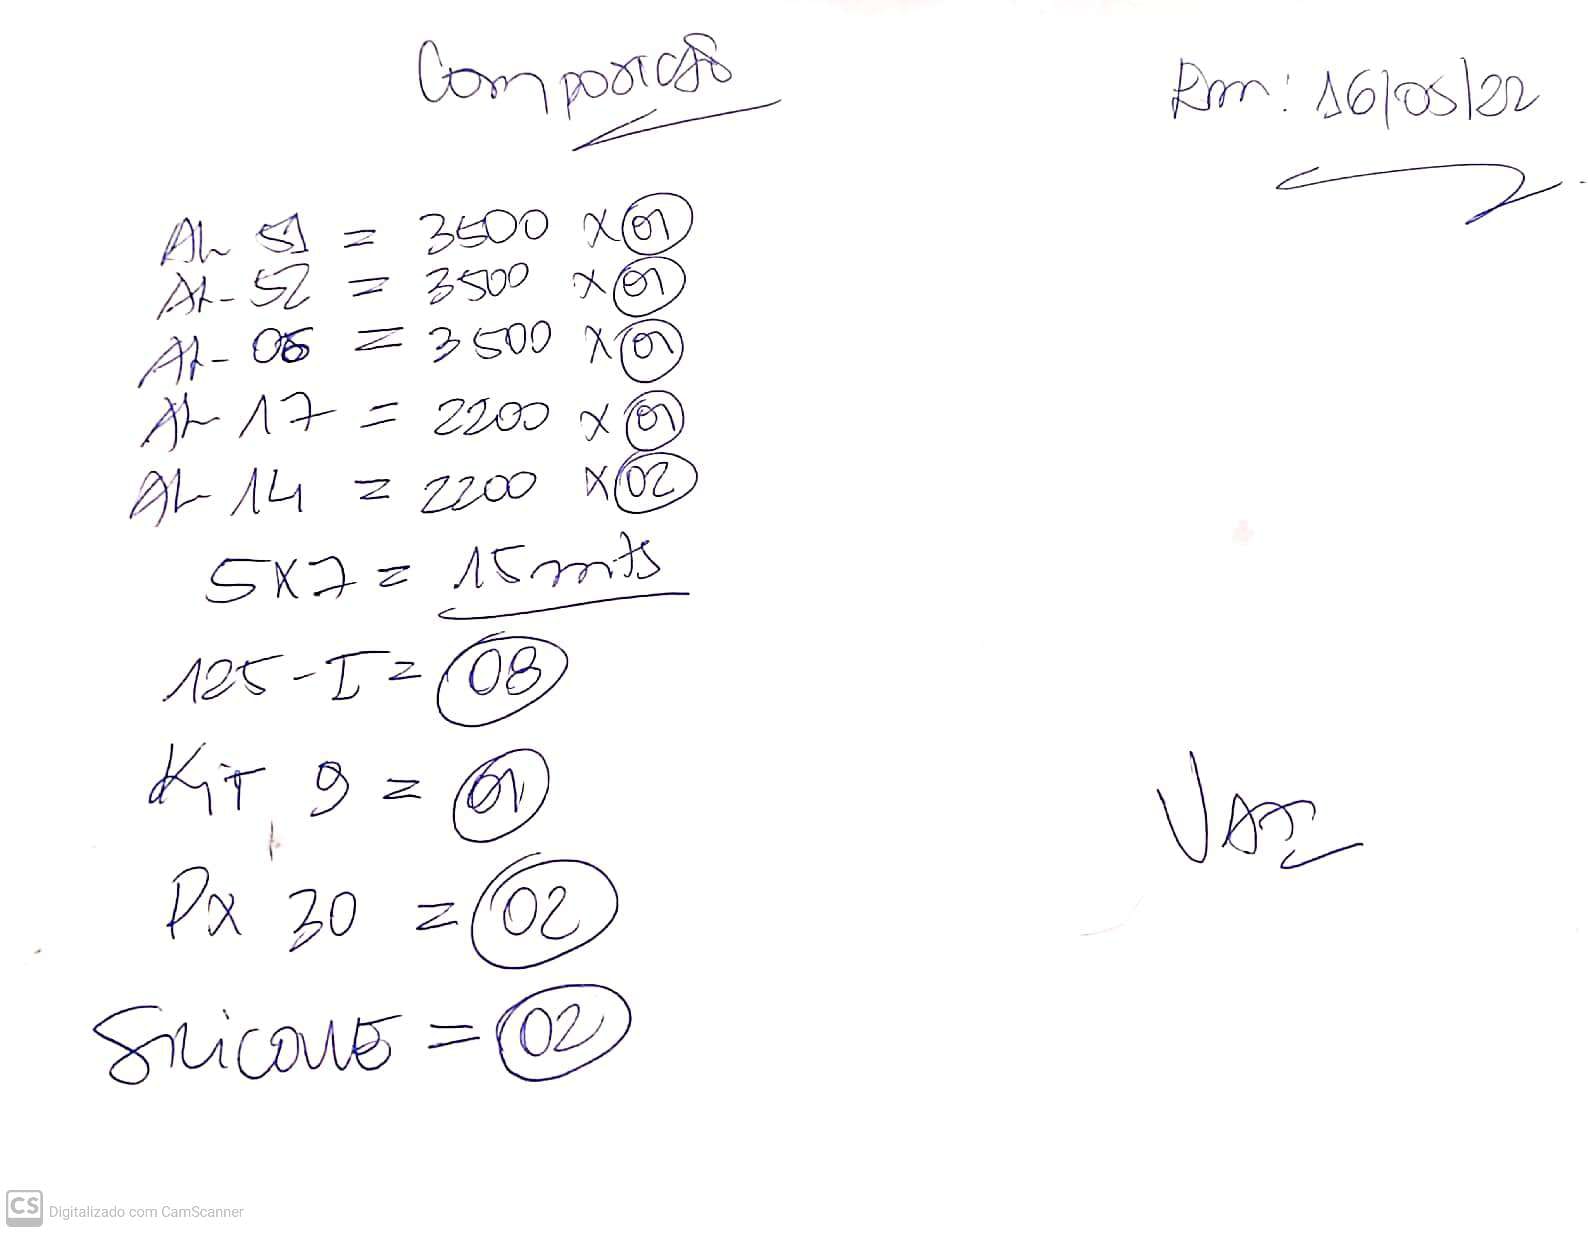 Composição
Rm: 16/05/22
AL 51 = 3500 x 01
AL-52 = 3500 x 01
AL-06 = 3500 x 01
AL 17 = 2200 x 01
AL 14 = 2200 x 02
5x7 = 15 mts
125-I = 08
Kit 9 = 01
Px 30 = 02
Silicone = 02
Vaz
CS Digitalizado com CamScanner